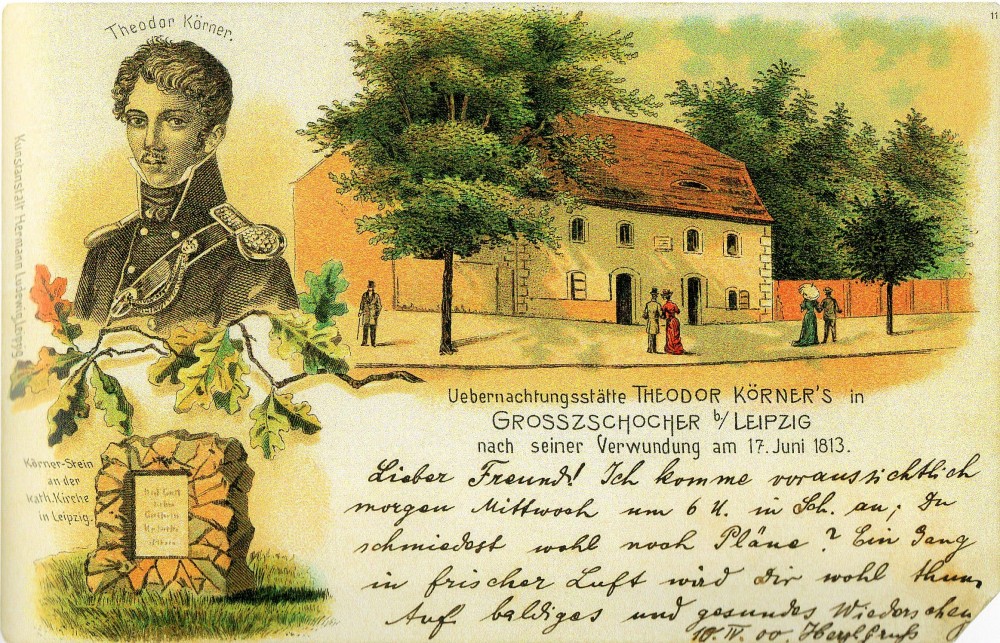 11
Theodor Körner.
Kunstanstalt Hermann Ludewig, Leipzig
Uebernachtungsstätte THEODOR KÖRNER'S in
GROSSZSCHOCHER b/ LEIPZIG
nach seiner Verwundung am 17. Juni 1813.
Körner-Stein
an der
kath. Kirche
in Leipzig.
Lieber Freund! Ich komme voraussichtlich
morgen Mittwoch um 6 U. in Sch. an; Du
schmiedest wohl noch Pläne? Ein Gang
in frischer Luft wird Dir wohl thun,
Auf baldiges und gesundes Wiedersehen
10. IV. 00 Herzl Gruß